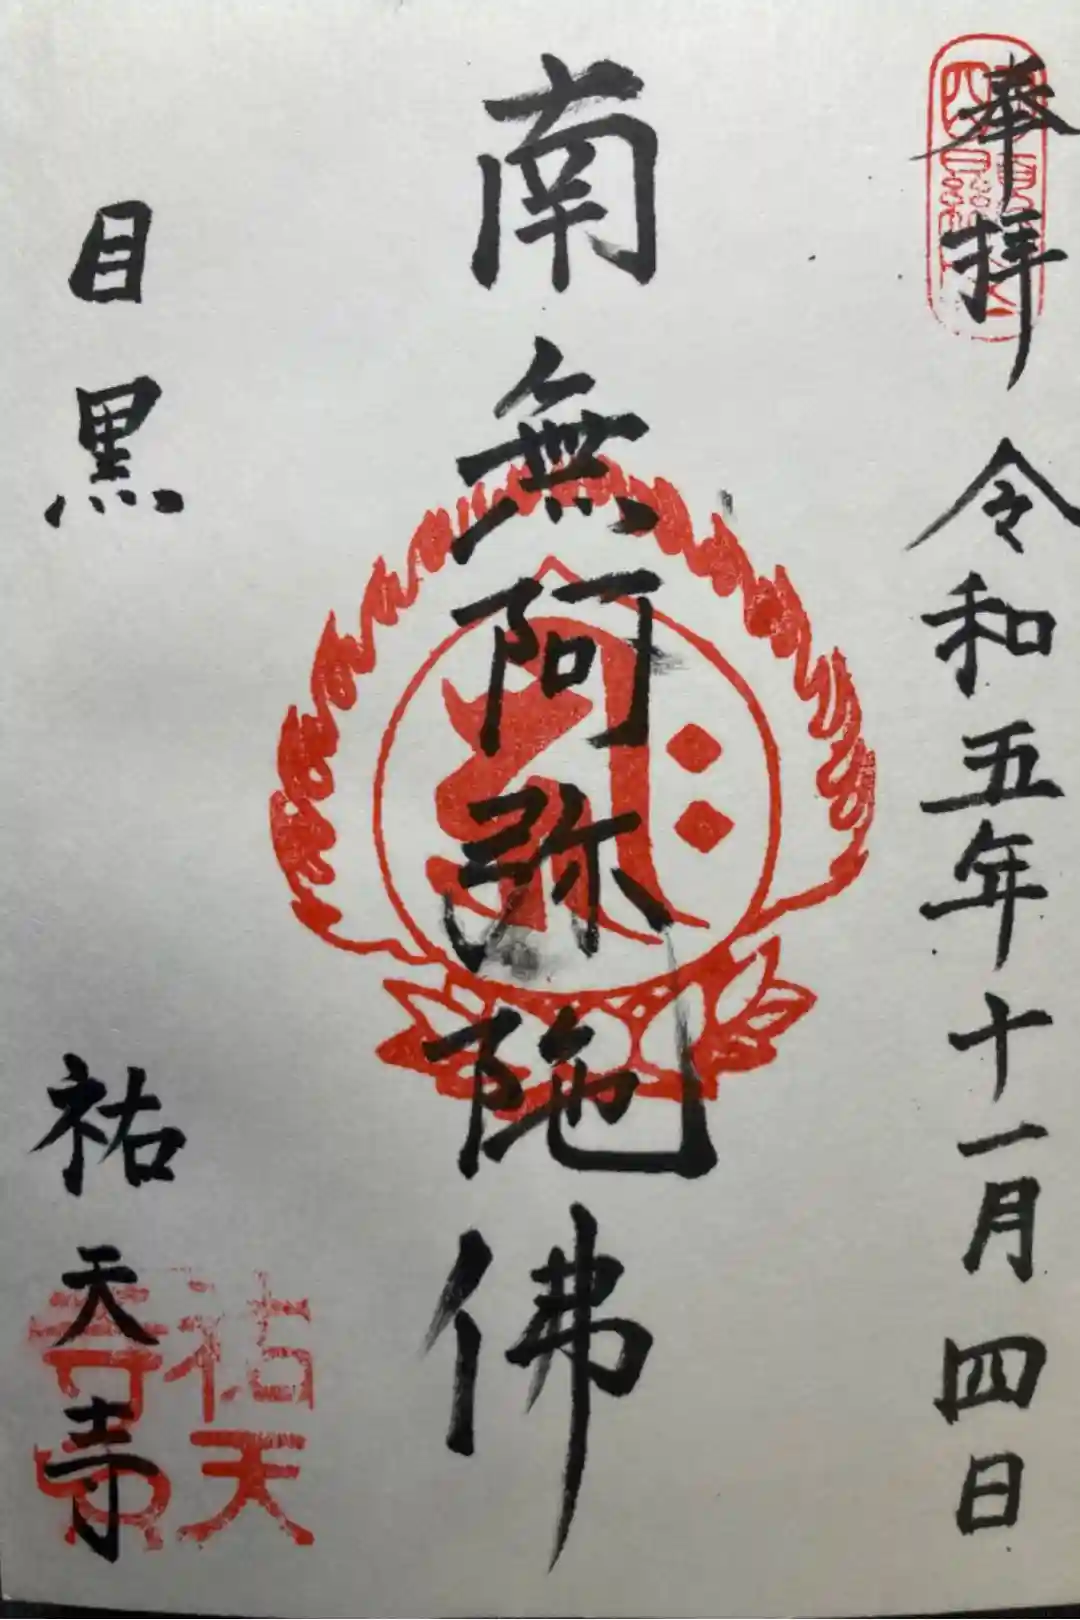 奉拝 令和五年十一月四日
南無阿弥陀佛
目黒 祐天寺
祐天